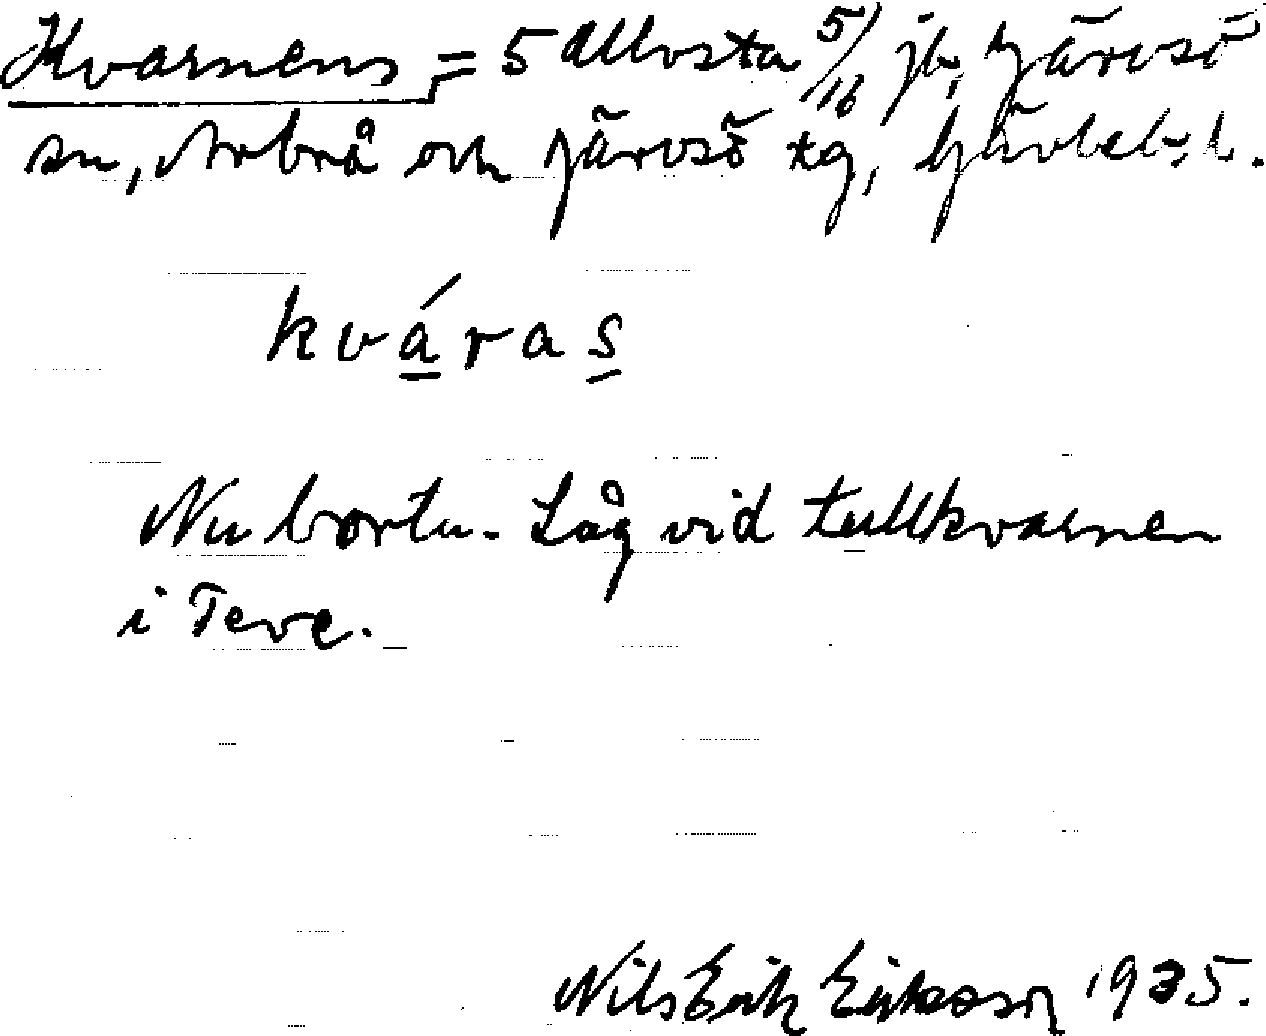 Kvarnens = 5 Allvsta 5/16 jb, Järvsö
sn, Arbrå och Järvsö tg, Gävleb:s l.
kváras
Nu borta. Låg vid tullkvarnen
i Teve.
Nils Erik Eriksson 1935.